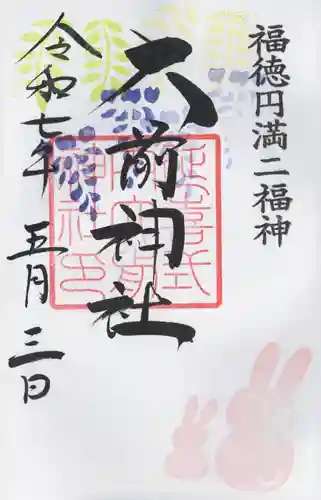 福徳円満二福神
大前神社
延喜式
内大前
神社印
令和七年 五月三日